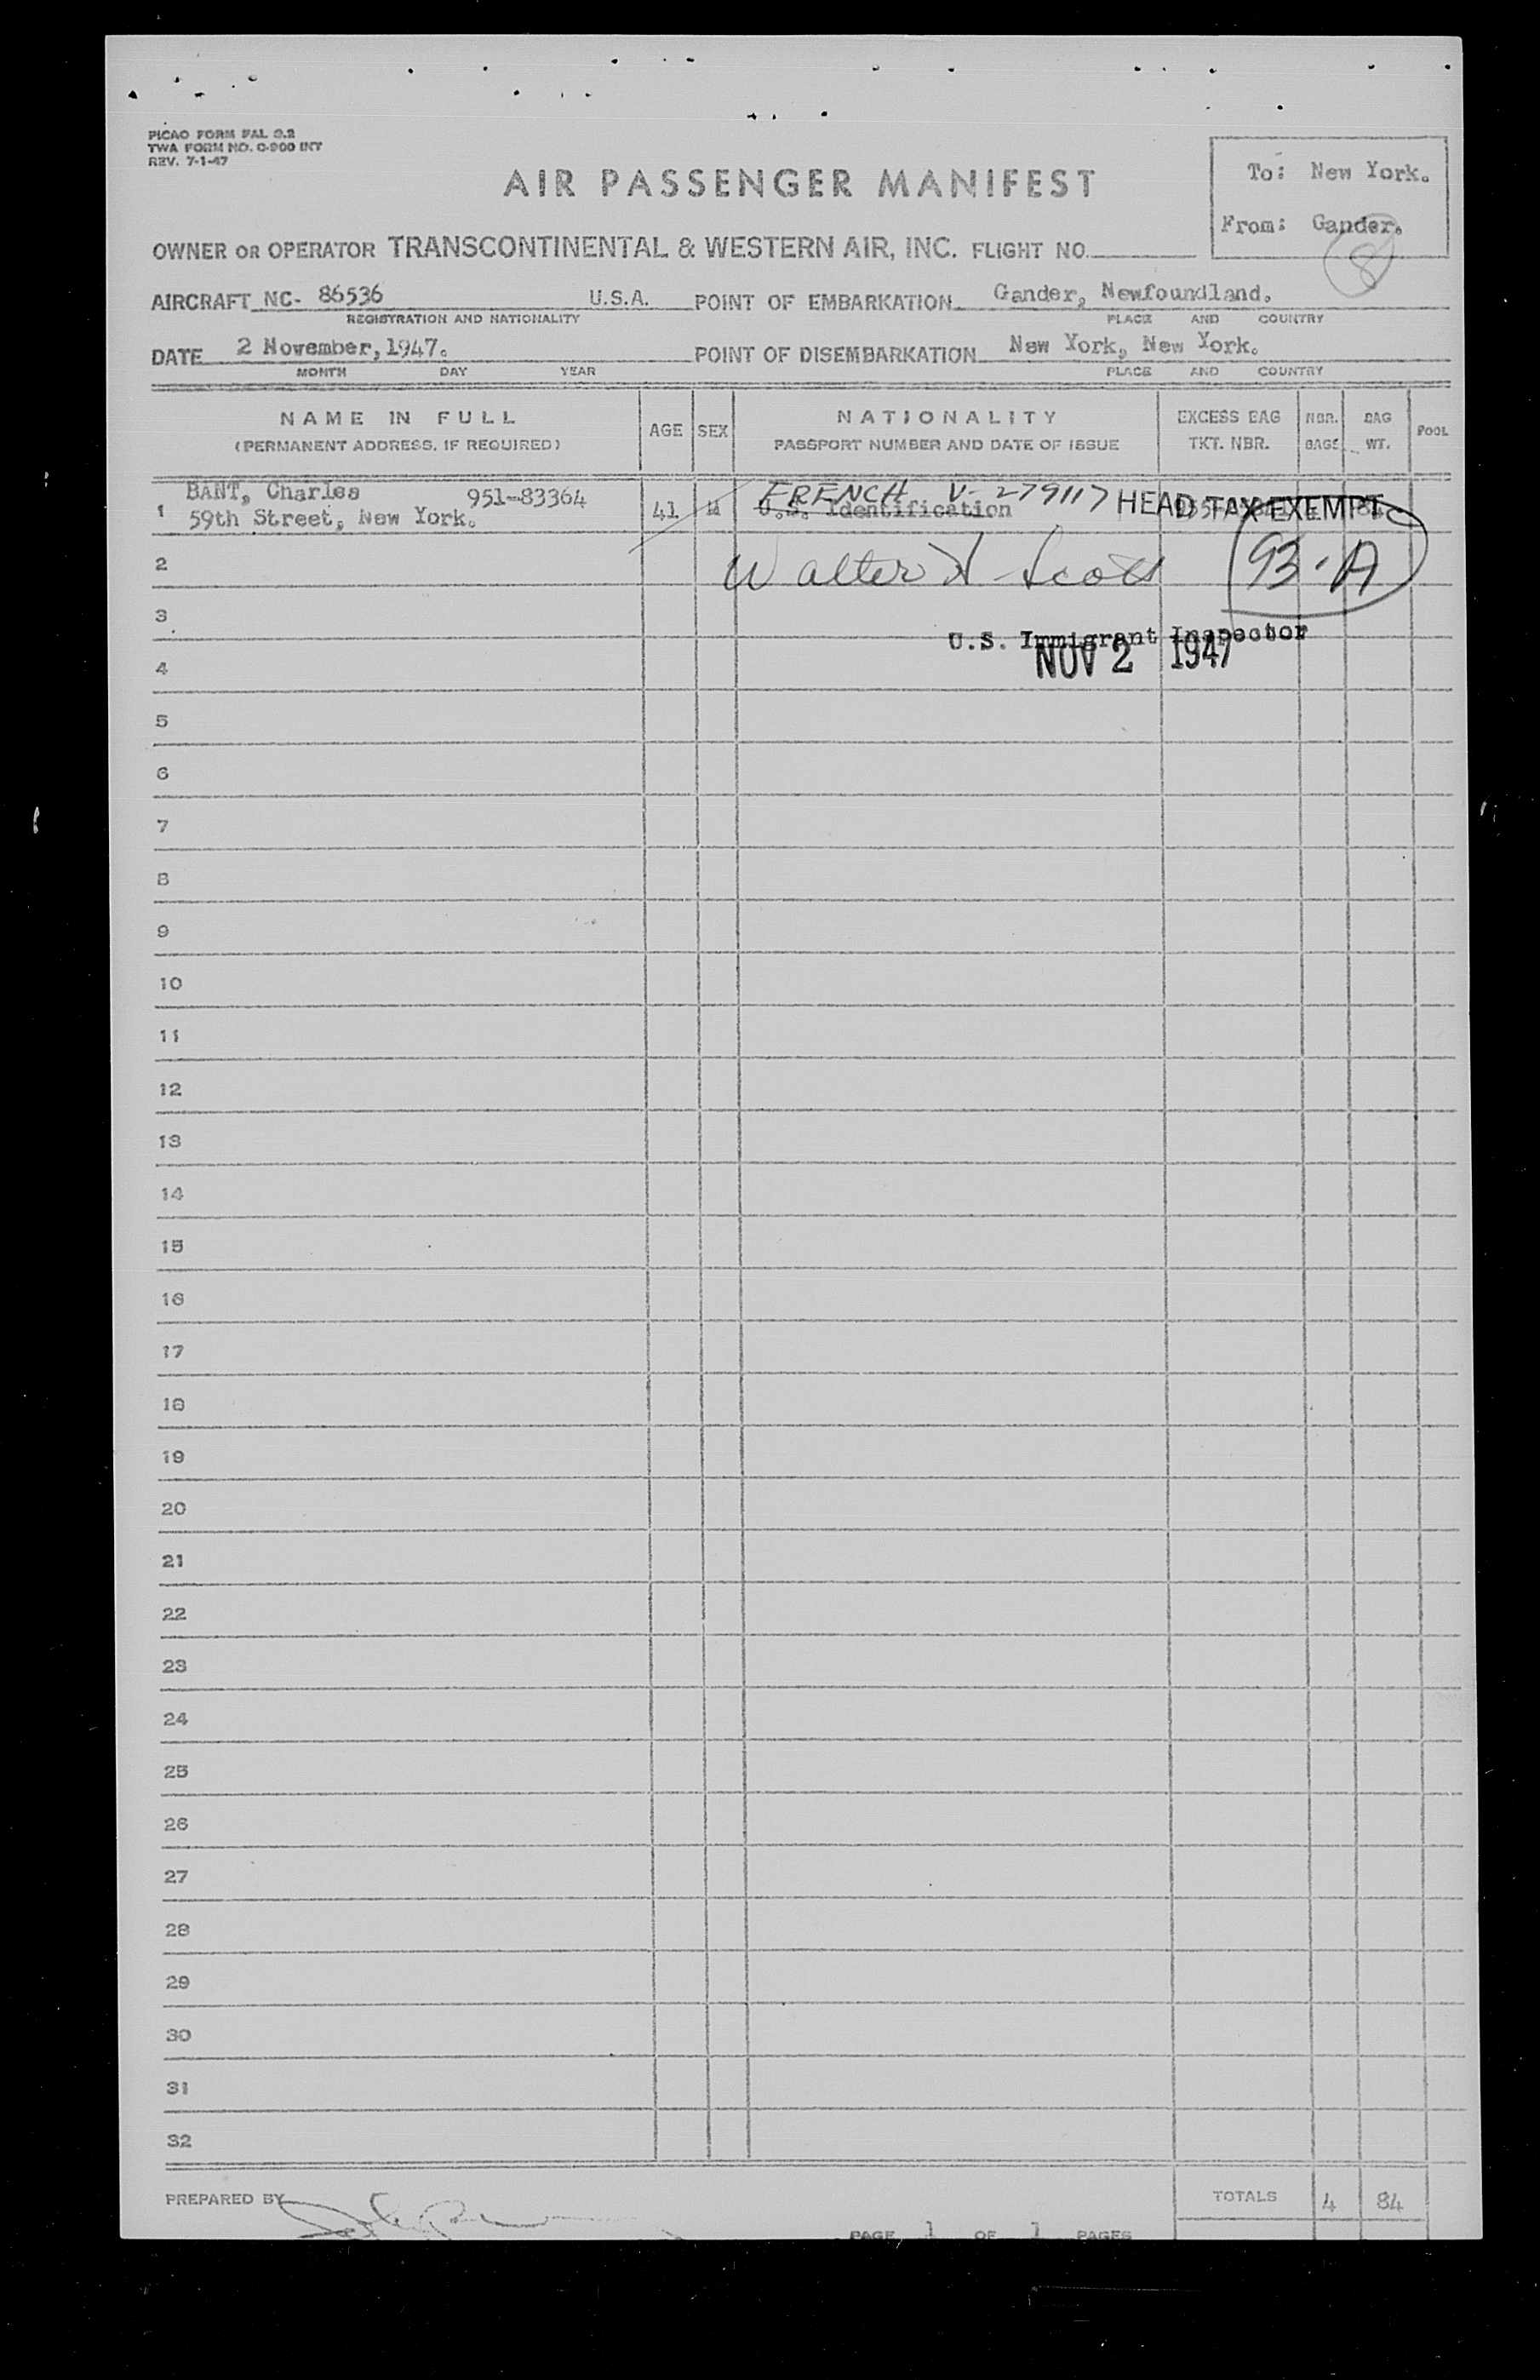 PICAO FORM FAL 9.2
TWA FORM NO. O-900 INT
REV. 7-1-47
AIR PASSENGER MANIFEST
To: New York.
From: Gander.
8
OWNER OR OPERATOR TRANSCONTINENTAL & WESTERN AIR, INC. FLIGHT NO.
AIRCRAFT NC- 86536 U.S.A. POINT OF EMBARKATION Gander, Newfoundland.
REGISTRATION AND NATIONALITY PLACE AND COUNTRY
DATE 2 November, 1947. POINT OF DISEMBARKATION New York, New York.
MONTH DAY YEAR PLACE AND COUNTRY
NAME IN FULL AGE SEX NATIONALITY EXCESS BAG NBR. BAG POOL
(PERMANENT ADDRESS, IF REQUIRED) PASSPORT NUMBER AND DATE OF ISSUE TKT. NBR. BAGS WT.
BANT, Charles 951-83364 FRENCH V-279117 HEAD TAX EXEMPT
1 59th Street, New York. 41 M U.S. Identification
2 Walter Scott 93-A
3
U.S. Immigrant Inspector
4 NOV 2 1947
5
6
7
8
9
10
11
12
13
14
15
16
17
18
19
20
21
22
23
24
25
26
27
28
29
30
31
32
PREPARED BY TOTALS 4 84
PAGE 1 OF 1 PAGES